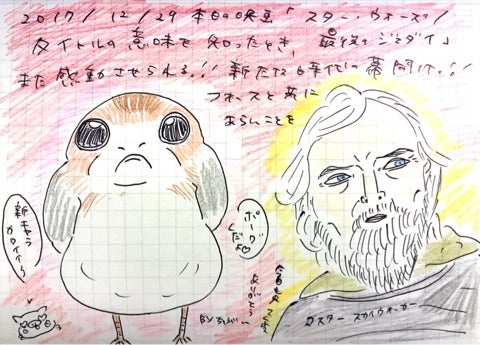 2017/12/29 本日の映画「スター・ウォーズ/
最後のジェダイ」
タイトルの意味を知ったとき、
また感動させられる!! 新たな時代の幕開け!!
フォースと共に
あらんことを
新キャラ
カワイイ〜
ポーグ
だよ
ありがとう
マスター スカイウォーカー